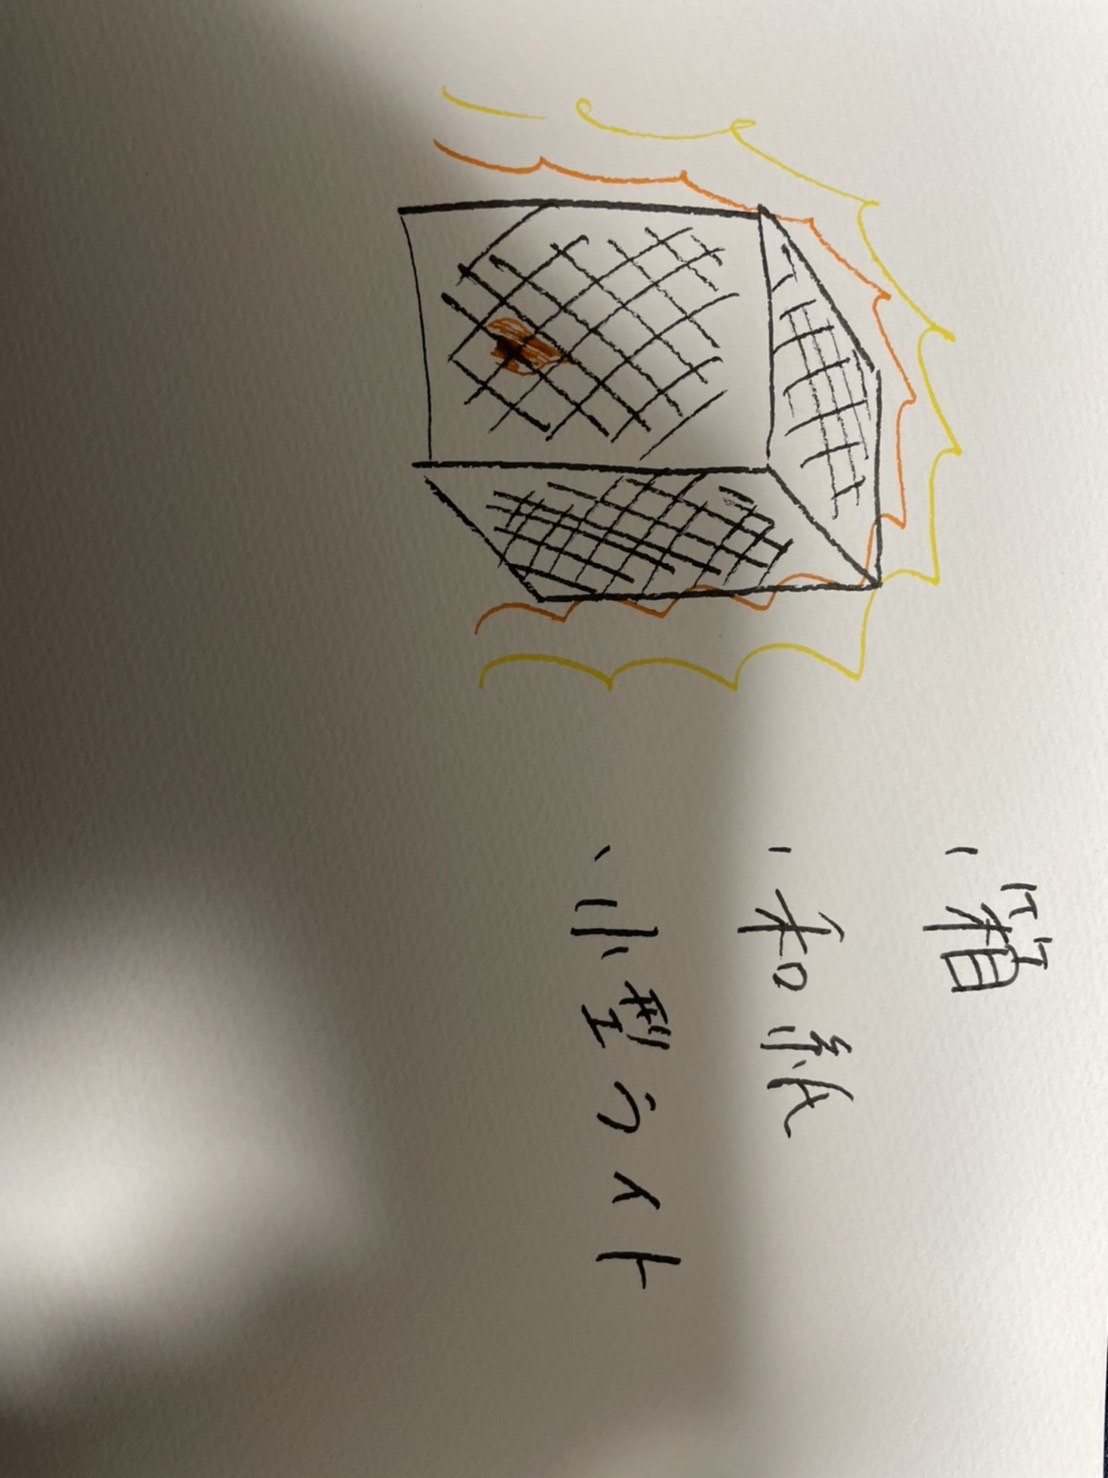 ・箱
・和紙
・小型ライト